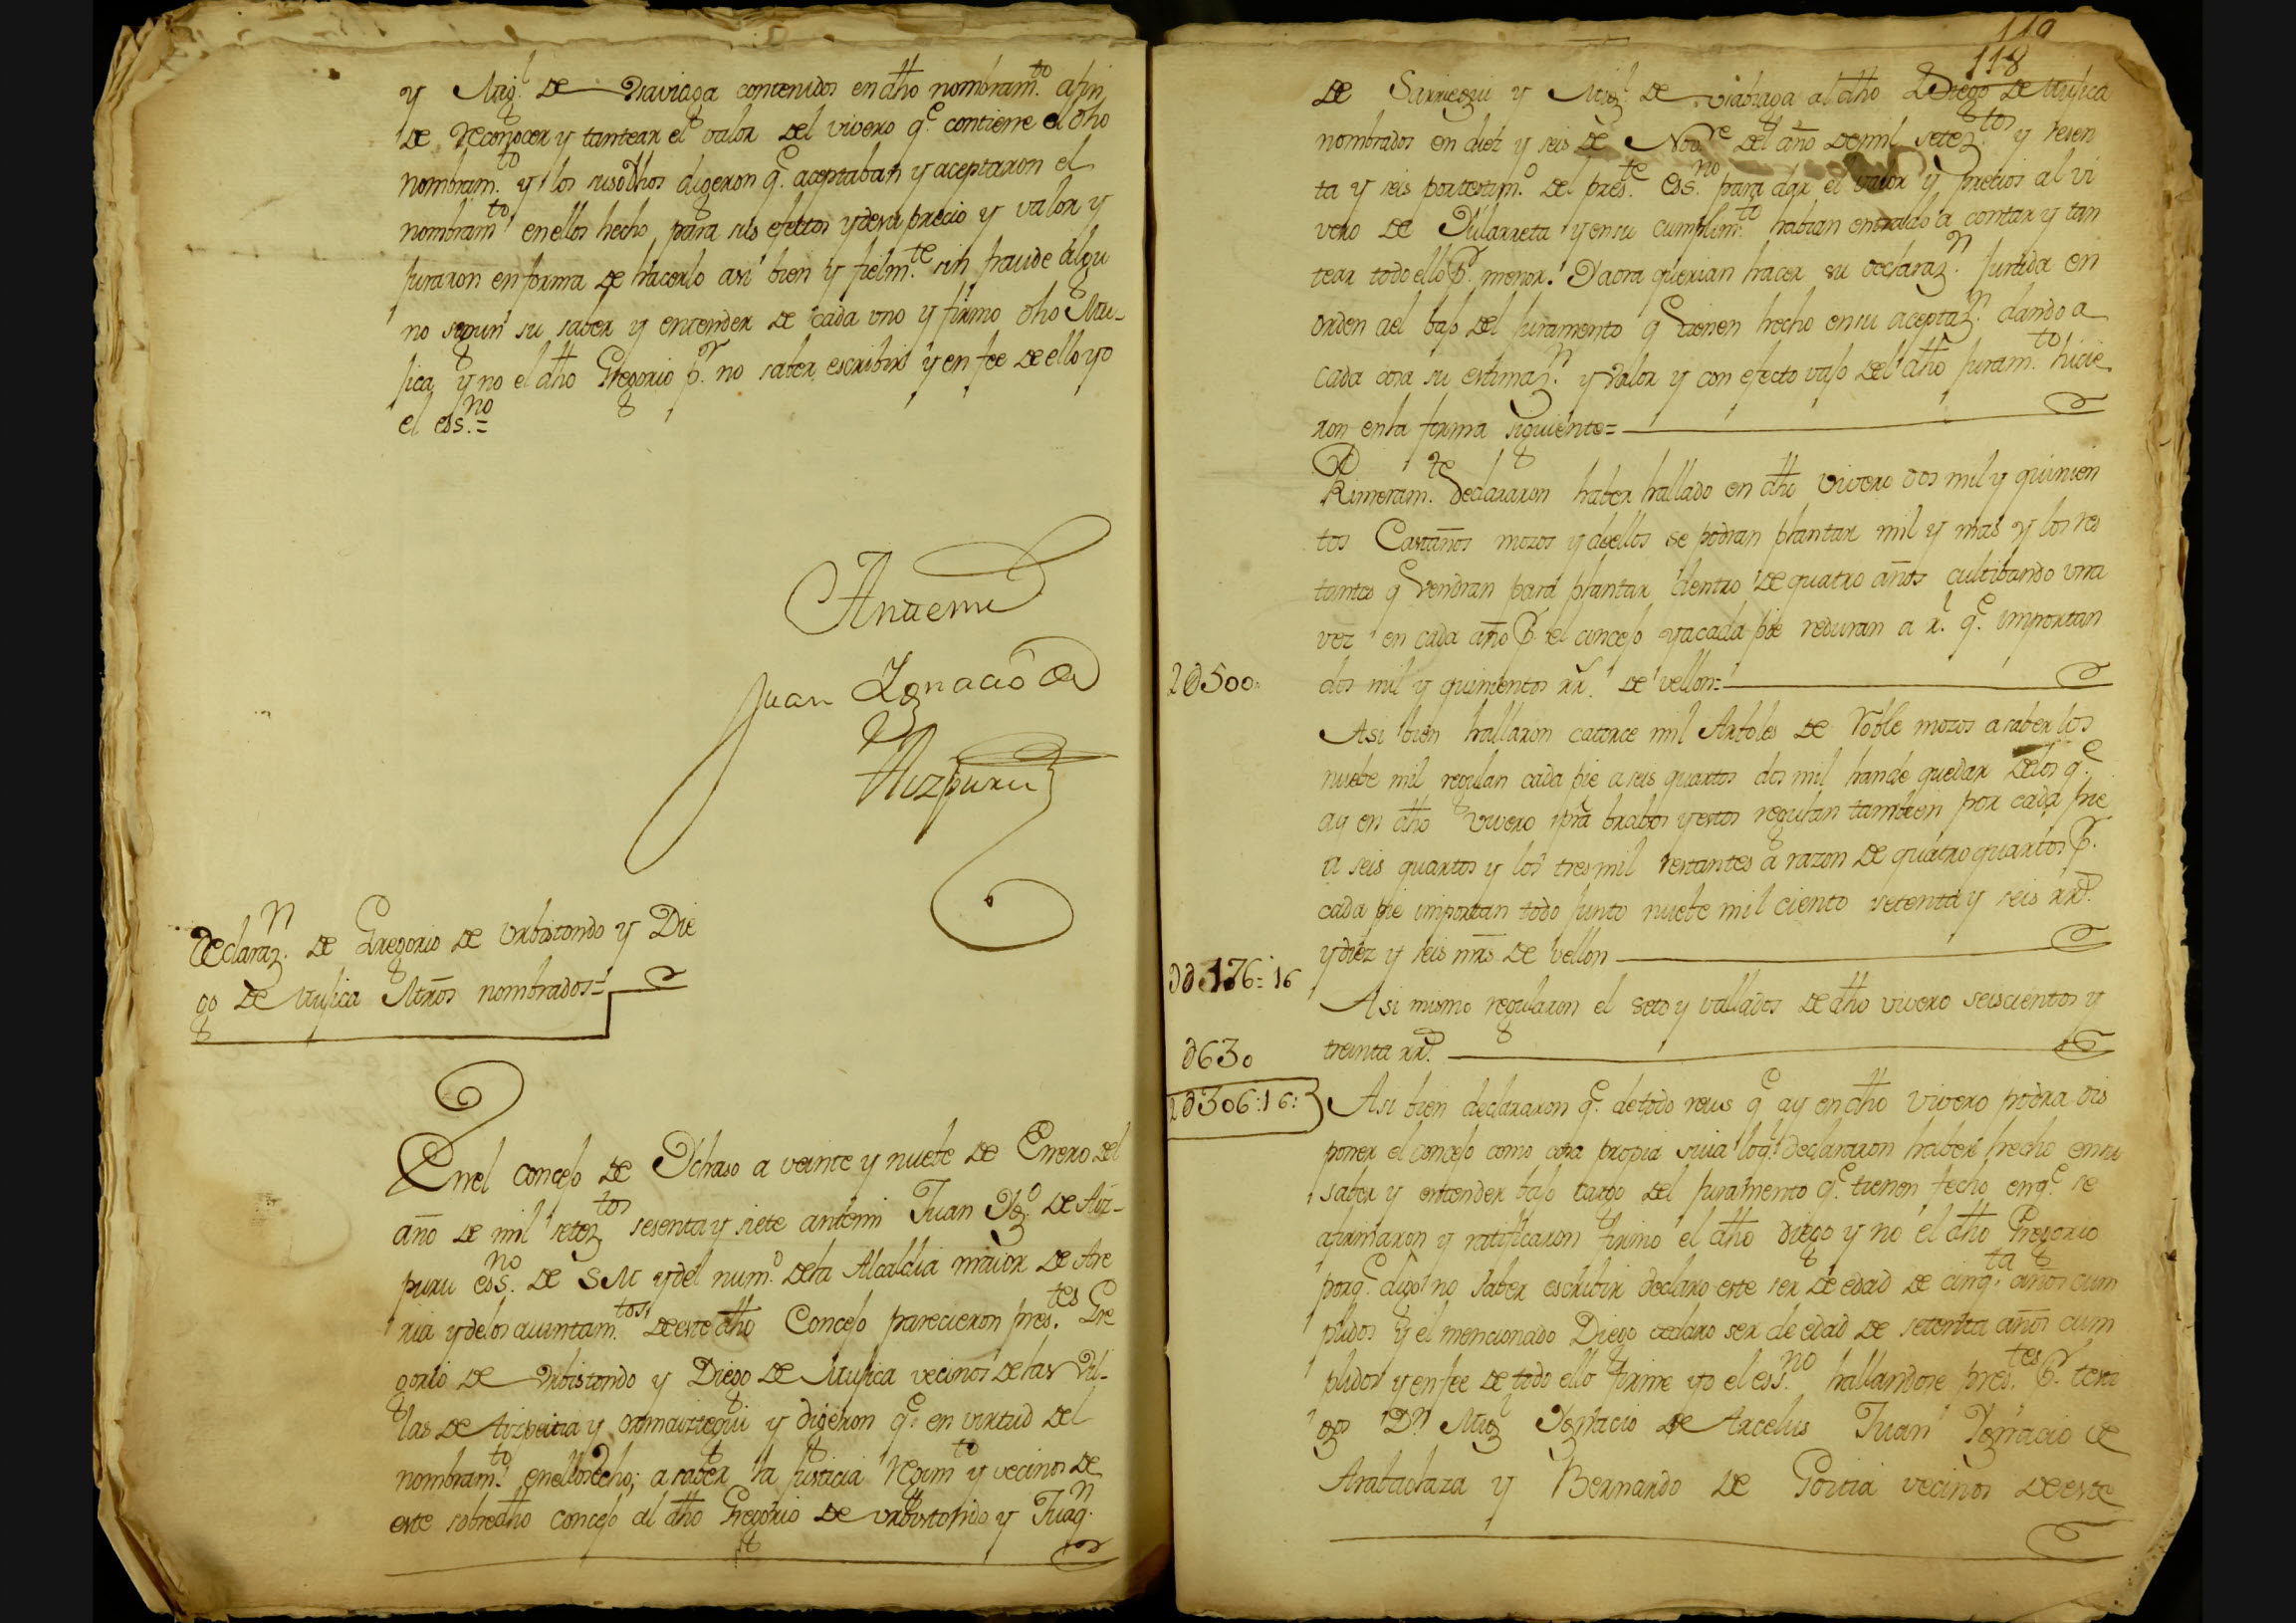 y Mig.l de Viaviaga contenidos en dho nombram.to afin
de reconocer y tantear el valor del vivero q.e contiene el dho
nombram.to y los susodhos digeron q.e aceptaban y aceptaron el
nombram.to en ellos hecho, para sus efectos y de su precio y valor y
juraron en forma de hacerlo asi bien y fielm.te sin fraude algu
no segun su saber y entender de cada uno y firmo dho Mu-
jica, y no el dho Gregorio p.r no saber escribir y en fee de ello yo
el ess.no =
Antemi
Juan Ignacio de
Aizpuru
Declaraz.n de Gregorio de Urbistondo y Die
go de Mujica Mros nombrados =
En el concejo de Ochaso a veinte y nuebe de Enero del
año de mil setez.tos sesenta y siete antemi Juan Ig.o de Aiz-
puru ess.no de S M y del num.o de la Alcaldia maior de Are
ria y de los aiuntam.tos de este dho Concejo parecieron pres.tes Gre
gorio de Urbistondo y Diego de Mujica vecinos de las Vil-
las de Azpeitia y ormaiztegui y digeron q.e en virtud del
nombram.to en ellos echo; a saber la Justicia Regim.to y vecinos de
este sobredho concejo al dho Gregorio de Urbistondo y Juaq.n
119
118
de Sarriegui y Mig.l de Viabiaga al dho Diego de Mujica
nombrados en diez y seis de Nov.e del año de mil setez.tos y sesen
ta y seis por testim.o del pres.te ess.no para dar el valor y precios al vi
vero de Oularreta y en su cumplim.to habian entrado a contar y tan
tear todo ello p.r menor. Y aora querian hacer su declaraz.n jurada en
orden a el bajo del juramento q.e tienen hecho en su aceptaz.n dando a
cada cosa su estimaz.n y valor y con efecto vajo del dho juram.to hicie
ron en la forma siguiente =
Primeram.te declararon haber hallado en dho vivero dos mil y quinien
tos Castaños mozos y de ellos se podran plantar mil y mas y los res
tantes q.e vendran para plantar dentro de quatro años cultibando una
vez en cada año p.r el concejo y a cada pie reduran a r.l q.e importan
2@500.
dos mil y quinientos rr.s de vellon =
Asi bien hallaron catorce mil Arboles de roble mozos a saber los
nuebe mil regulan cada pie a seis quartos dos mil han de quedar de los q.e
ay en dho vivero pra brabos y estos regulan tambien por cada pie
a seis quartos y los tres mil restantes a razon de quatro quartos p.r
cada pie importan todo junto nuebe mil ciento setenta y seis rr.s
y diez y seis mrs de vellon
9@176=16
Asi mismo regularon el seto y vallados de dho vivero seiscientos y
@630
treinta rr.s
2@306:16:
Asi bien declararon q.e de todo reius q.e ay en dho vivero podra dis
poner el concejo como cosa propia suia lo q.e declararon haber hecho en su
saber y entender bajo cargo del juramento q.e tienen fecho en q.e se
afirmaron y ratificaron firmo el dho Diego y no el dho Gregorio
porq.e dijo no saber escribir declaro este ser de edad de cinq.ta años cum
plidos y el mencionado Diego declaro ser de edad de setenta años cum
plidos y en fee de todo ello firme yo el ess.no hallandose pres.tes p.r testi
gos Dn Mig.l Ygnacio de Arcelus Juan Ygnacio de
Arabaolaza y Bernardo de Goitia vecinos de este